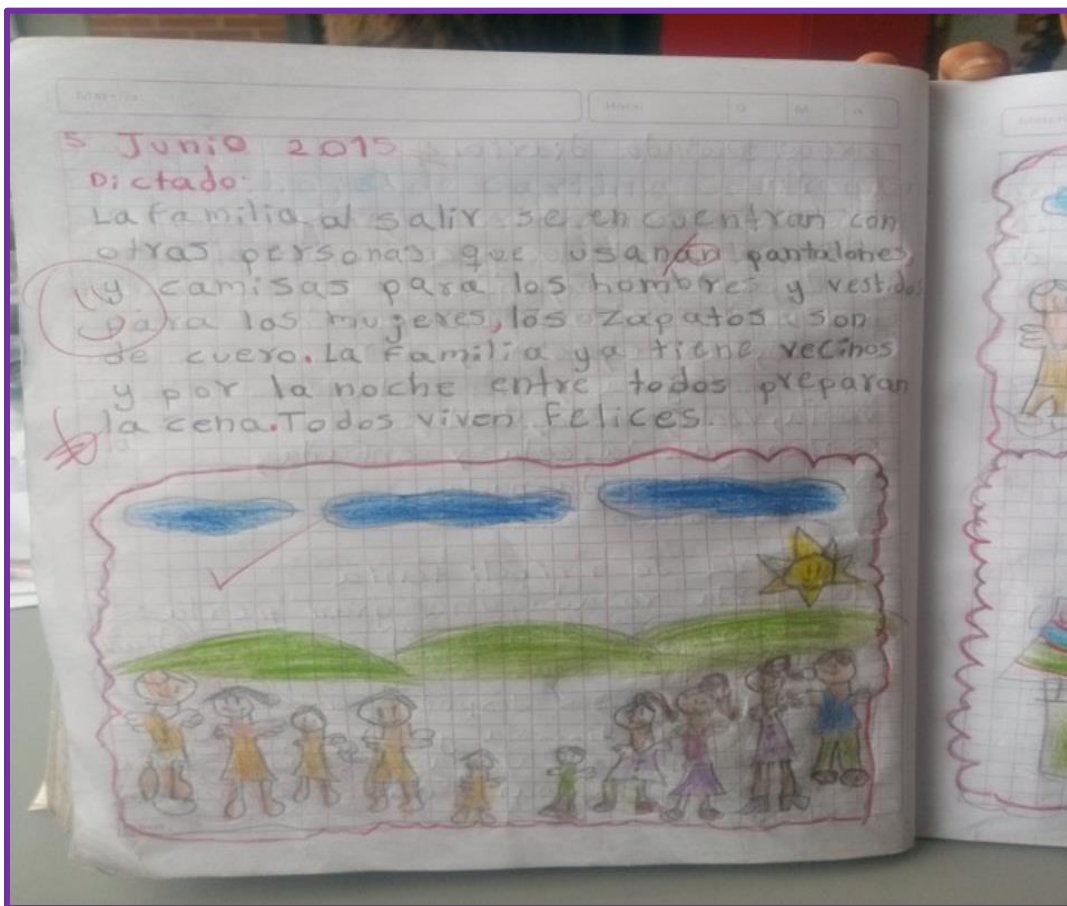 5 Junio 2015
Dictado.
La familia al salir se encuentran con
otras personas que usanan pantalones,
y camisas para los hombres y vestidos
para las mujeres, los zapatos son
de cuero. La familia ya tiene vecinos
y por la noche entre todos preparan
la cena. Todos viven felices.